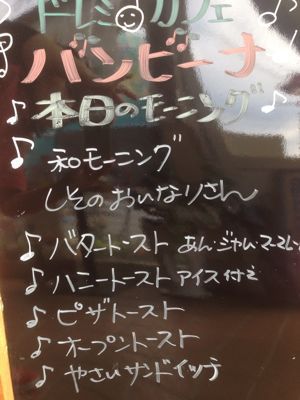 ドレミ♪カフェ
バンビーナ
♪本日のモーニング♪
♪和モーニング
しそのおいなりさん
♪バタートースト あん・ジャム・マーマレー
♪ハニートースト アイス付き
♪ピザトースト
♪オープントースト
♪やさいサンドイッチ